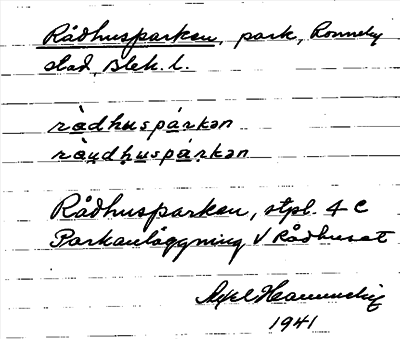 Rådhusparken, park, Ronneby
stad, Blek. l.
ràdhuspárkən
ràu̯dhuspárkən
Rådhusparken, stpl. 4 C
Parkanläggning V Rådhuset
Axel
1941